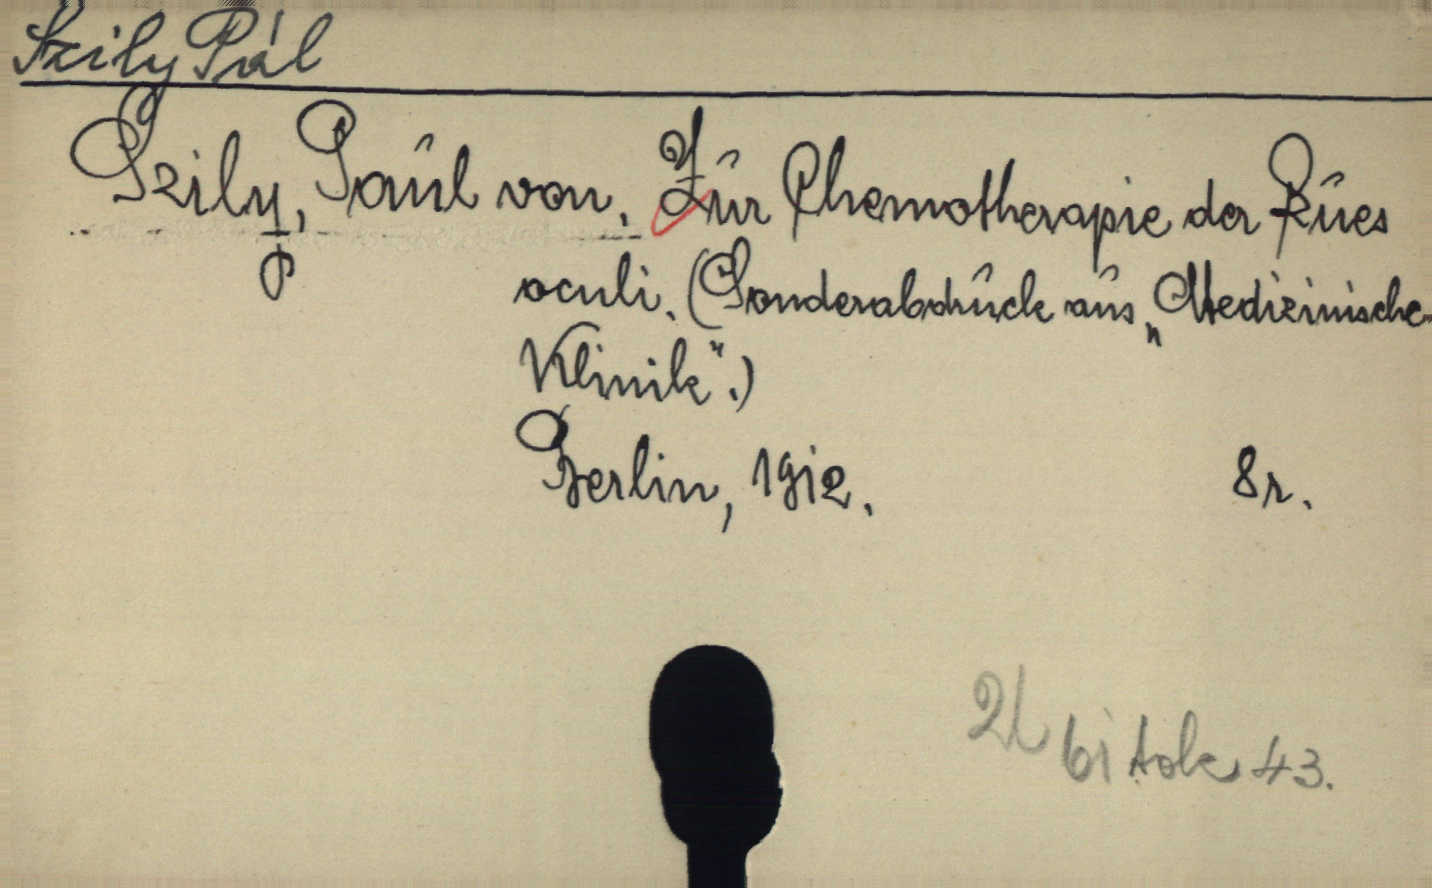 Szily Pál
Szily, Paul von. Zur Chemotherapie der Lues
oculi. (Sonderabdruck aus „Medizinische
Klinik“.)
Berlin, 1912. 8r.
tok 43.